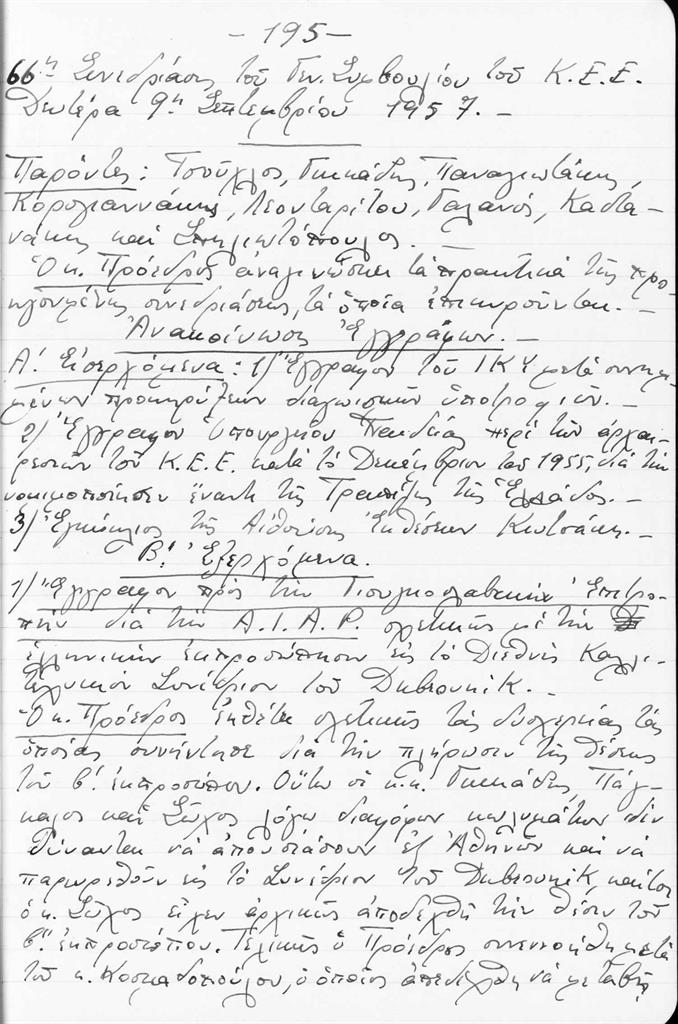 - 195 -
66η Συνεδρίασις τοῦ Γεν. Συμβουλίου τοῦ Κ.Ε.Ε.
Δευτέρα 9η Σεπτεμβρίου 1957. -
Παρόντες: Τσοῦχλος, Γκικάδης, Παναγιωτάκης,
Κορογιαννάκης, Λεονταρίτου, Γαλανός, Καστα-
νάκης καί Σπηλιωτόπουλος. -
Ὁ κ. Πρόεδρος ἀναγινώσκει τά πρακτικά τῆς προ-
ηγουμένης συνεδριάσεως, τά ὁποῖα ἐπικυροῦνται. -
Ἀνακοίνωσις Ἐγγράφων. -
Α! Εἰσερχόμενα: 1) Ἔγγραφον τοῦ ΙΚΥ μετά συνημ-
μένων προκηρύξεων διαγωνισμῶν ὑποτροφιῶν. -
2) Ἔγγραφον Ὑπουργείου Παιδείας περί τῶν ἀρχαι-
ρεσιῶν τοῦ Κ.Ε.Ε. κατά τό Δεκέμβριον τοῦ 1955, διά τήν
νομιμοποίησιν ἔναντι τῆς Τραπέζης τῆς Ἑλλάδος. -
3) Ἐγκύκλιος τῆς Αἰθούσης Ἐκθέσεων Κωτσάκη. -
Β! Ἐξερχόμενα.
1) Ἔγγραφον πρός τήν Γιουγκοσλαβικήν Ἐπιτρο-
πήν διά τήν A.I.A.P. σχετικῶς μέ τήν
ἑλληνικήν ἐκπροσώπησιν εἰς τό Διεθνές Καλλι-
τεχνικόν Συνέδριον τοῦ Dubrovnik. -
Ὁ κ. Πρόεδρος ἐκθέτει σχετικῶς τάς δυσχερείας τάς
ὁποίας συνήντησε διά τήν πλήρωσιν τῆς θέσεως
τοῦ β! ἐκπροσώπου. Οὕτω οἱ κ.κ. Γκικάδης, Πάγ-
καλος καί Σῶχος λόγω διαφόρων κωλυμάτων δέν
δύνανται νά ἀπουσιάσουν ἐξ Ἀθηνῶν καί νά
παρευρεθοῦν εἰς τό Συνέδριον τοῦ Dubrovnik, καίτοι
ὁ κ. Σῶχος εἶχεν ἀρχικῶς ἀποδεχθῆ τήν θέσιν τοῦ
β! ἐκπροσώπου. Τελικῶς ὁ Πρόεδρος συνεννοήθη μετά
τοῦ κ. Κοσμαδοπούλου, ὁ ὁποῖος ἀπεδέχθη νά μεταβῇ